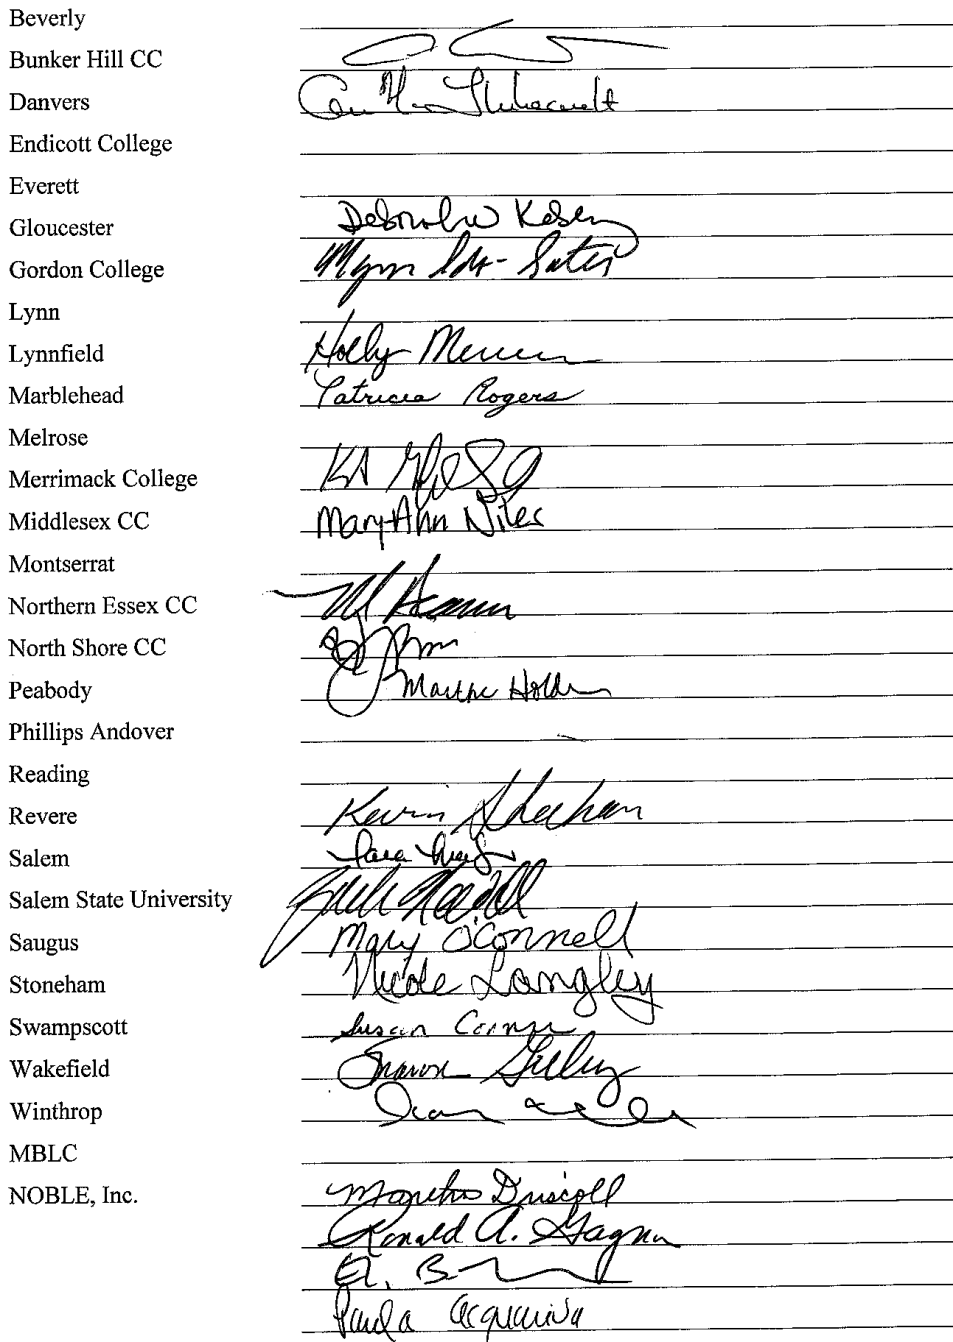 Beverly
Bunker Hill CC
Danvers
Endicott College
Everett
Gloucester Deborah Kelsey
Gordon College Myron
Lynn
Lynnfield Holly Mercer
Marblehead Patricia Rogers
Melrose
Merrimack College
Middlesex CC MaryAnn Niles
Montserrat
Northern Essex CC
North Shore CC
Peabody Martha Holden
Phillips Andover
Reading
Revere Kevin Sheehan
Salem
Salem State University
Saugus Mary O'Connell
Stoneham Nicole Langley
Swampscott Susan Conner
Wakefield Sharon Gilley
Winthrop
MBLC
NOBLE, Inc. Martha Driscoll
Ronald A. Gagnon
Paula Acquaviva